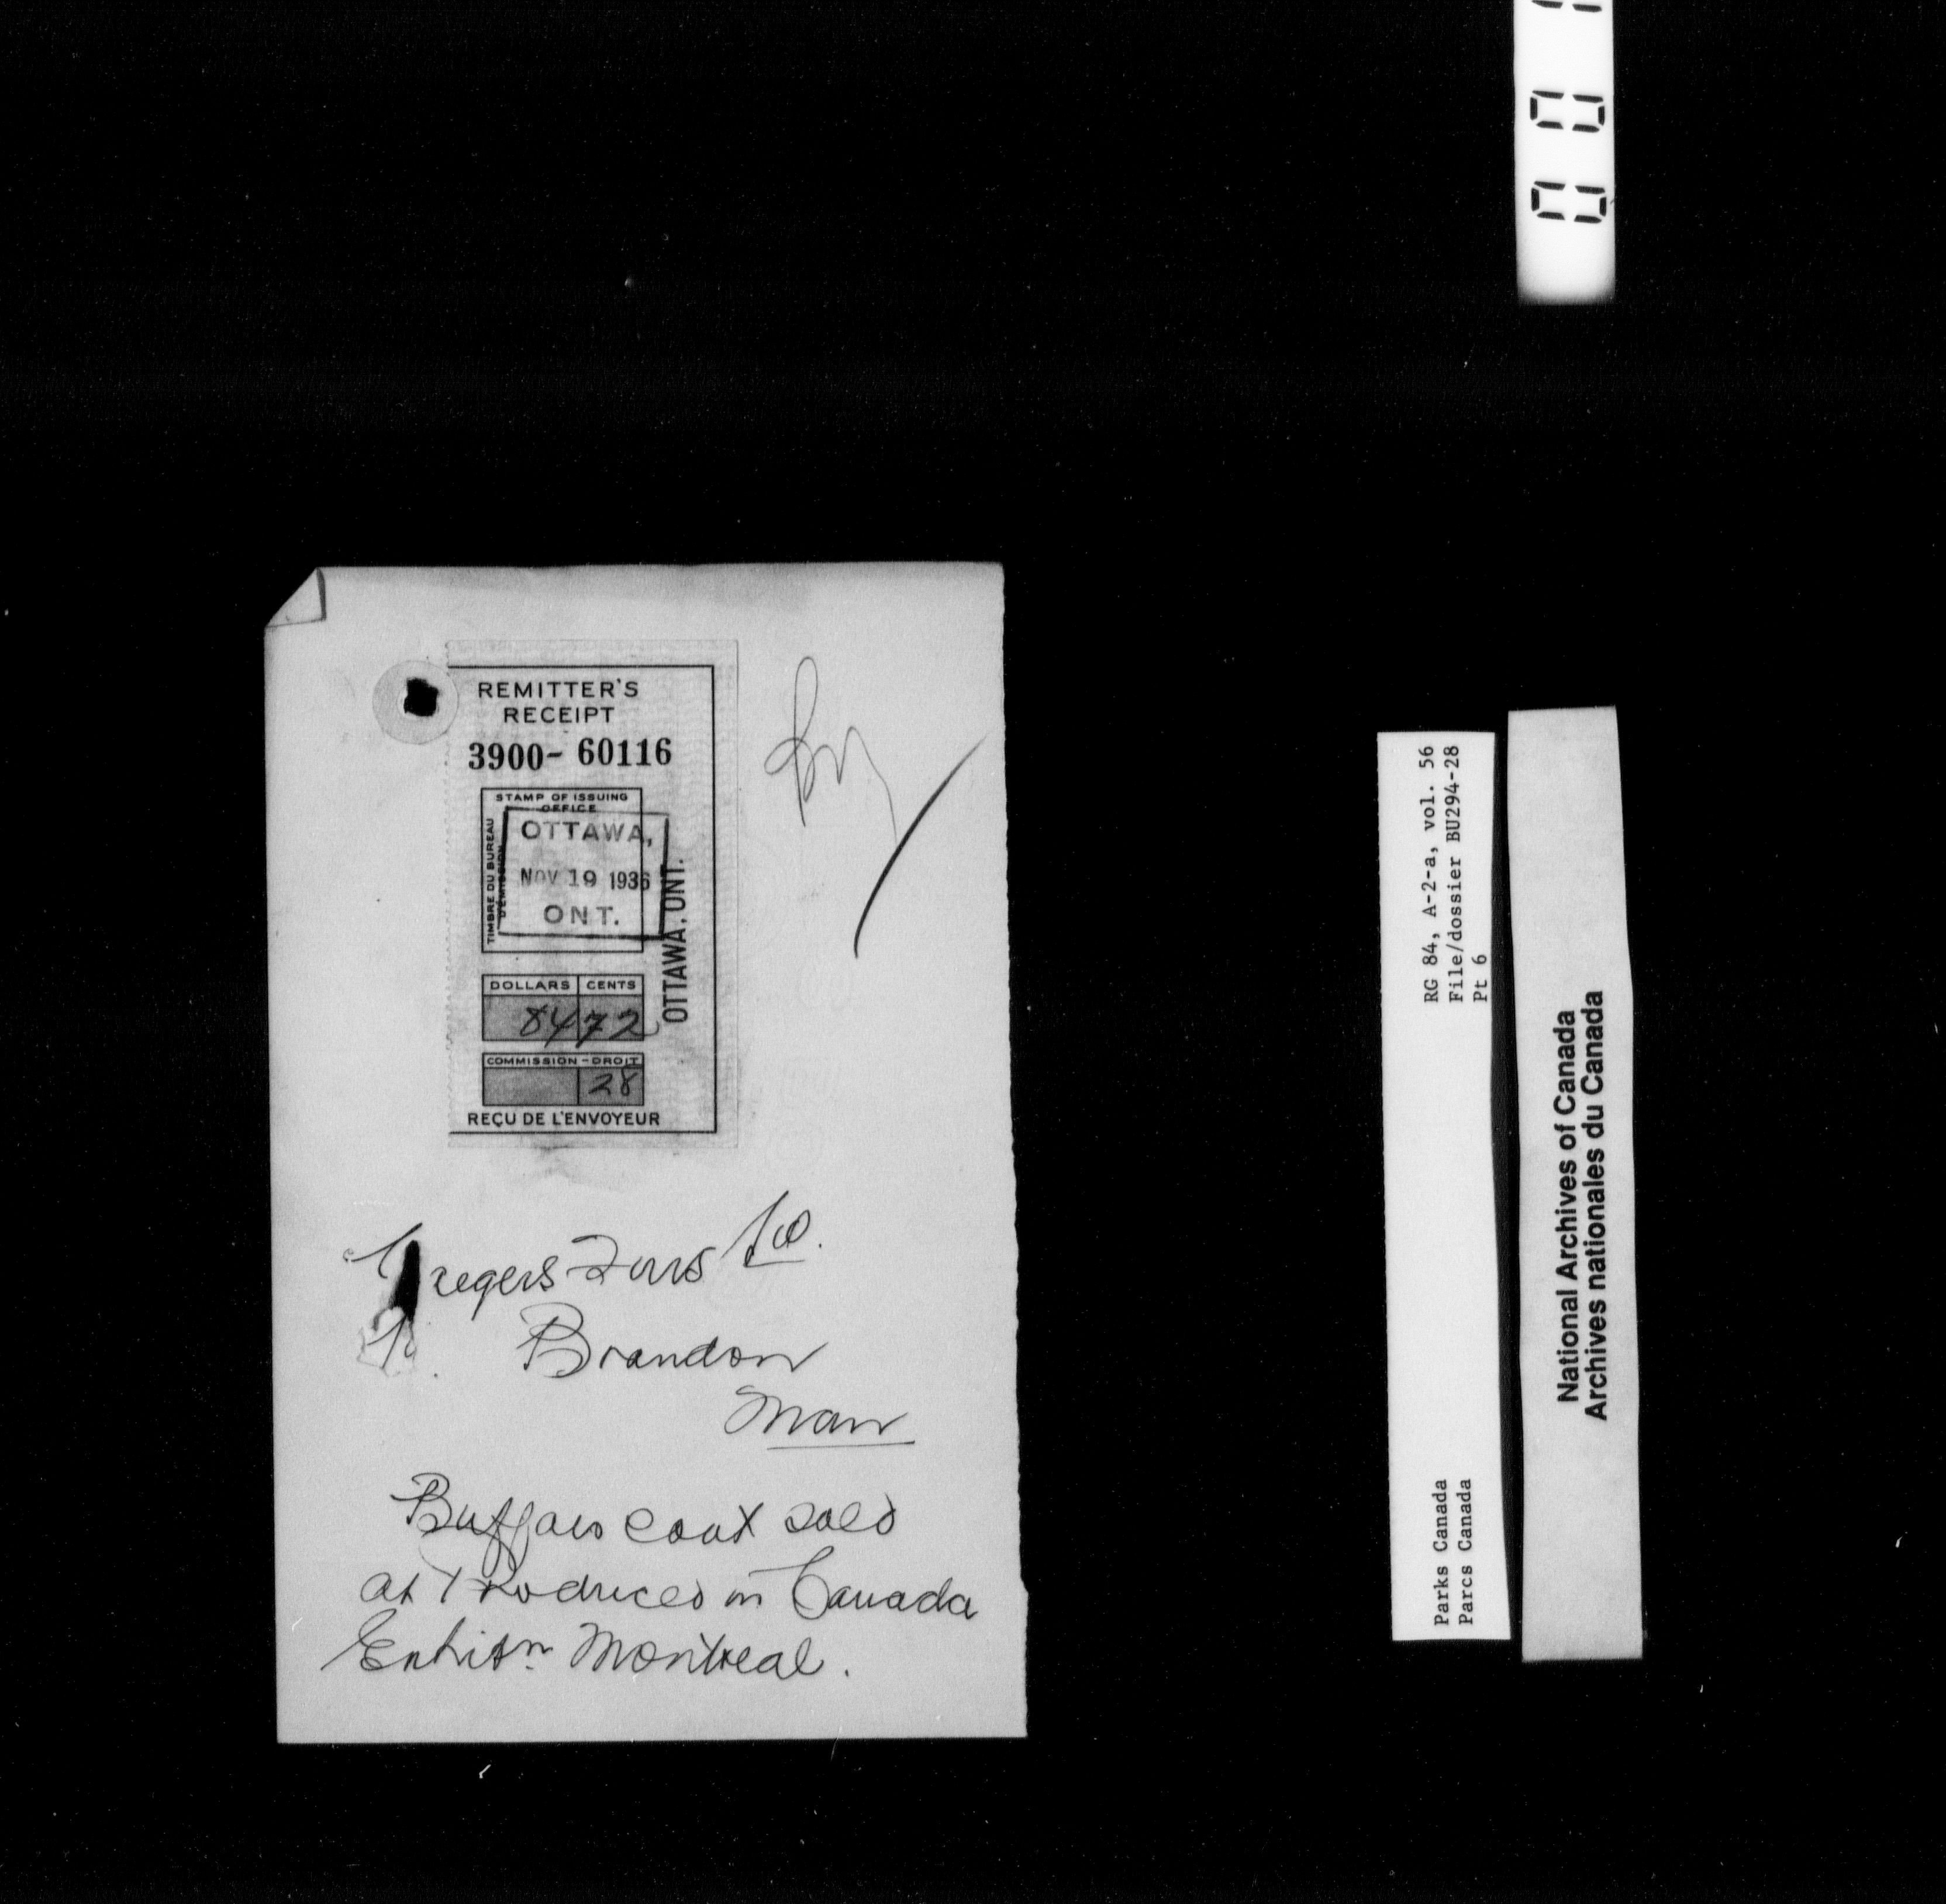 REMITTER'S
RECEIPT
3900- 60116
STAMP OF ISSUING
OFFICE
TIMBRE DU BUREAU
D'ÉMISSION
OTTAWA,
NOV 19 1936
ONT.
OTTAWA, ONT.
DOLLARS CENTS
84 72
COMMISSION - DROIT
28
REÇU DE L'ENVOYEUR
Furs
Brandon
Man
Buffalo coat sold
at Produced in Canada
Exhibtn Montreal.
RG 84, A-2-a, vol. 56
File/dossier BU294-28
Pt 6
Parks Canada
Parcs Canada
National Archives of Canada
Archives nationales du Canada